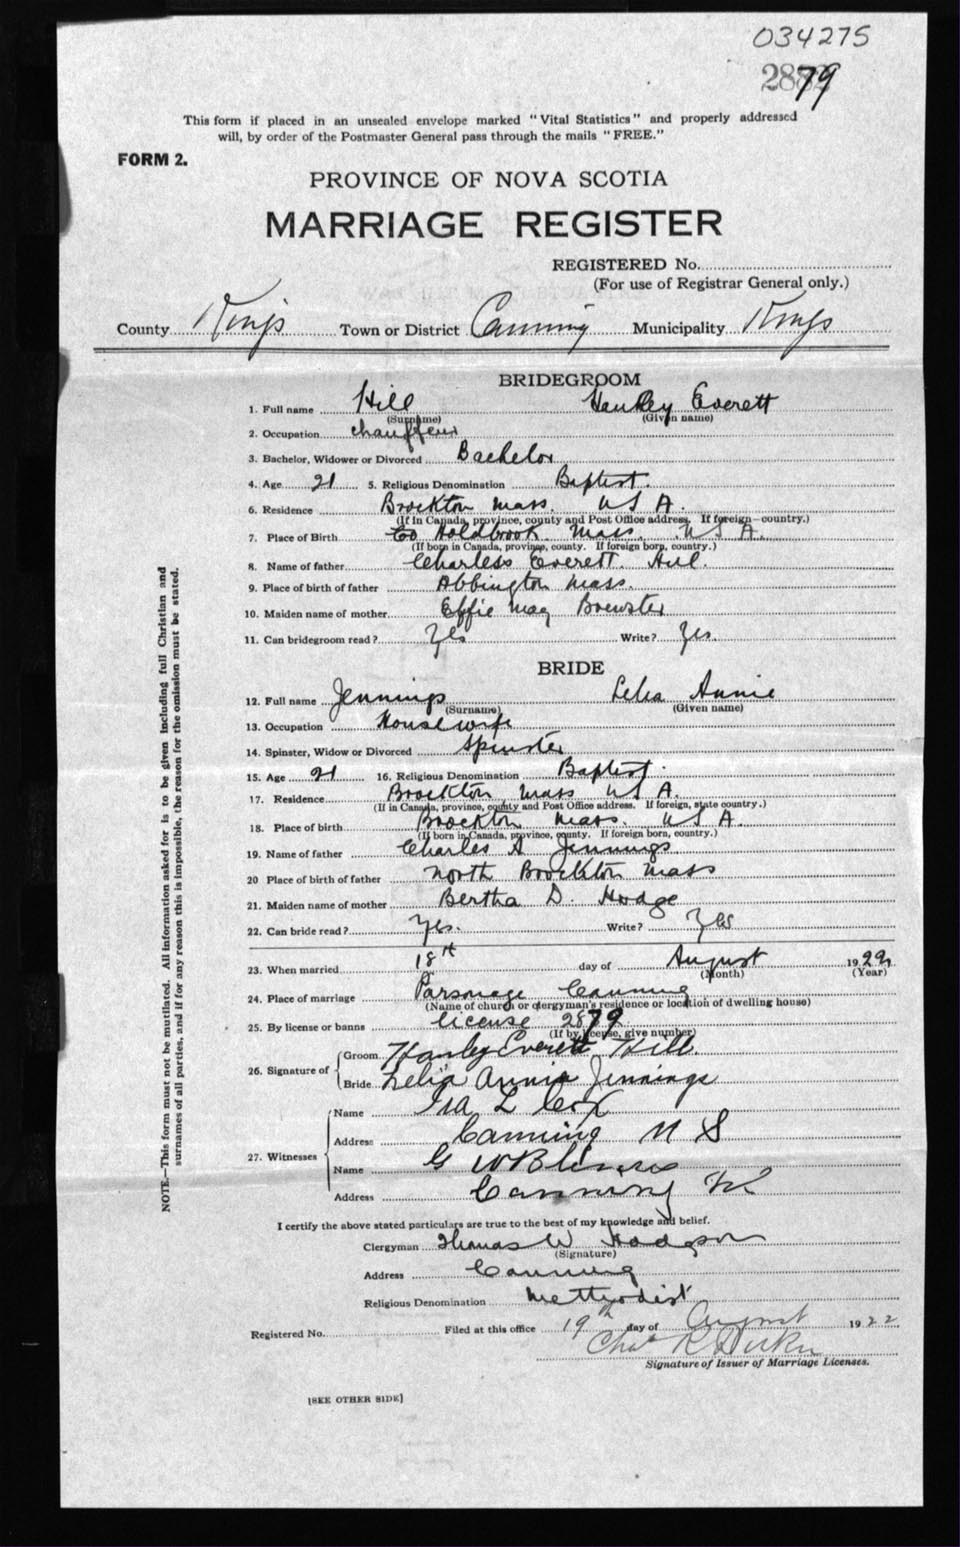 034275
2879
This form if placed in an unsealed envelope marked "Vital Statistics" and properly addressed
will, by order of the Postmaster General pass through the mails "FREE."
FORM 2.
PROVINCE OF NOVA SCOTIA
MARRIAGE REGISTER
REGISTERED No.
(For use of Registrar General only.)
County Kings Town or District Canning Municipality Kings
BRIDEGROOM
1. Full name Hill Everett
(Surname) (Given name)
2. Occupation chauffeur
3. Bachelor, Widower or Divorced Bachelor
4. Age 21 5. Religious Denomination Baptist.
6. Residence Brockton Mass. U S A.
(If in Canada, province, county and Post Office address. If foreign—country.)
7. Place of Birth Holdbrook Mass. U S A.
(If born in Canada, province, county. If foreign born, country.)
8. Name of father Charless Everett Hill.
9. Place of birth of father Abbington Mass.
10. Maiden name of mother Effie May Brewster
11. Can bridegroom read? Yes Write? Yes.
BRIDE
12. Full name Jennings Lelia Annie
(Surname) (Given name)
13. Occupation Housewife
14. Spinster, Widow or Divorced Spinster
15. Age 21 16. Religious Denomination Baptist.
17. Residence Brockton Mass U S A.
(If in Canada, province, county and Post Office address. If foreign, state country.)
18. Place of birth Brockton Mass. U S A.
(If born in Canada, province, county. If foreign born, country.)
19. Name of father Charles A Jennings
20 Place of birth of father North Brockton Mass
21. Maiden name of mother Bertha D. Hodge
22. Can bride read? Yes. Write? Yes
23. When married 18th day of August 1922
(Month) (Year)
24. Place of marriage Parsonage Canning
(Name of church or clergyman's residence or location of dwelling house)
25. By license or banns license 2879
(If by license, give number)
26. Signature of Groom Hanley Everett Hill.
Bride Lelia Annie Jennings
27. Witnesses
Name Ira L Cox
Address Canning N S
Name G W
Address Canning NS
I certify the above stated particulars are true to the best of my knowledge and belief.
Clergyman Thomas W Hodgson
(Signature)
Address Canning
Religious Denomination Methodist
Registered No. Filed at this office 19th day of August 1922
Chas R
Signature of Issuer of Marriage Licenses.
[SEE OTHER SIDE]
NOTE.—This form must not be mutilated. All information asked for is to be given including full Christian and
surnames of all parties, and if for any reason this is impossible, the reason for the omission must be stated.